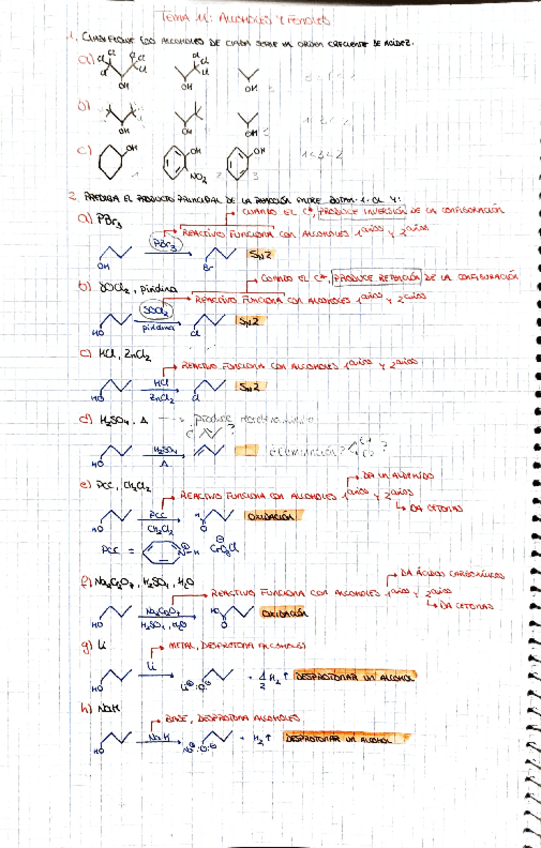 TEMA 11: ALCOHOLES Y FENOLES
1. CLASIFIQUE LOS ALCOHOLES DE CADA SERIE EN ORDEN CRECIENTE DE ACIDEZ.
a) Cl Cl Cl Cl OH Cl Cl OH OH
b) OH OH OH
c) OH OH NO2 OH
1 2 3 1<3<2
2. PREDIGA EL PRODUCTO PRINCIPAL DE LA REACCIÓN ENTRE BUTAN-1-OL Y:
CUANDO EL C*, PRODUCE INVERSIÓN DE LA CONFIGURACIÓN
a) PBr3
REACTIVO FUNCIONA CON ALCOHOLES 1arios Y 2arios
OH PBr3 Br SN2
CUANDO EL C*, PRODUCE RETENCIÓN DE LA CONFIGURACIÓN
b) SOCl2, piridina
REACTIVO FUNCIONA CON ALCOHOLES 1arios Y 2arios
HO SOCl2 piridina Cl SN2
c) HCl, ZnCl2
REACTIVO FUNCIONA CON ALCOHOLES 1arios Y 2arios
HO HCl ZnCl2 Cl SN2
d) H2SO4, Δ
produce
HO H2SO4 Δ eliminación?
DA UN ALDEHÍDO
e) PCC, CH2Cl2
REACTIVO FUNCIONA CON ALCOHOLES 1arios Y 2arios
DA CETONAS
HO PCC CH2Cl2 H O OXIDACIÓN
PCC = N-H CrO3Cl
DA ÁCIDOS CARBOXÍLICOS
f) Na2Cr2O7, H2SO4, H2O
REACTIVO FUNCIONA CON ALCOHOLES 1arios Y 2arios
DA CETONAS
HO Na2Cr2O7 H2SO4, H2O HO O OXIDACIÓN
g) Li
METAL, DESPROTONA ALCOHOLES
HO Li Li⊕ :O⊖ + 1/2 H2↑ DESPROTONAR UN ALCOHOL
h) NaH
BASE, DESPROTONA ALCOHOLES
HO NaH Na⊕ :O⊖ + H2↑ DESPROTONAR UN ALCOHOL